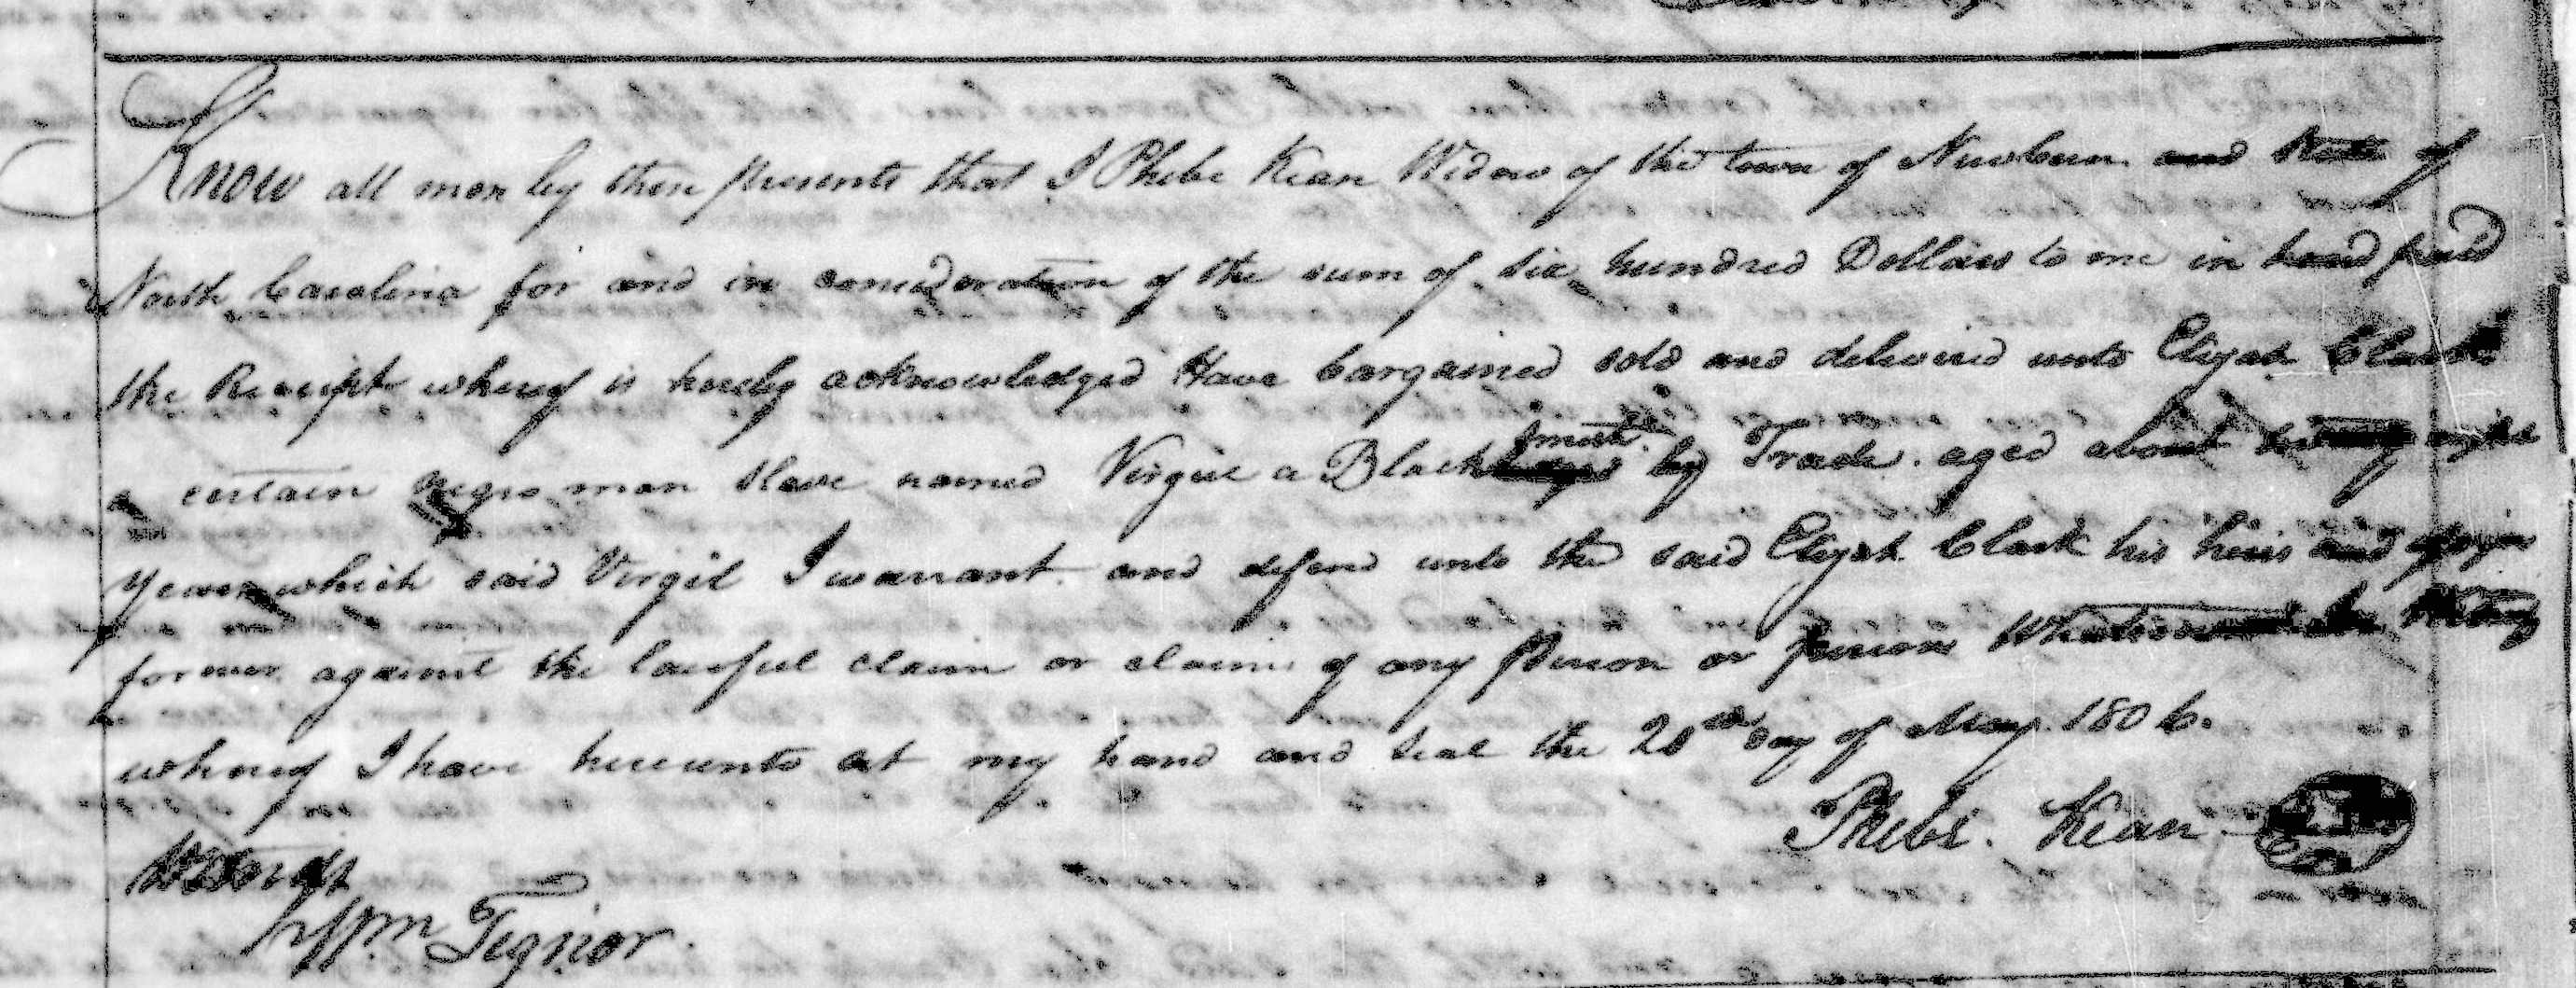 Know all men by these presents that I Phebe Kean Widow of the town of Newbern and State of
North Carolina for and in consideration of the sum of six hundred Dollars to me in hand paid
the Receipt whereof is hereby acknowledged Have bargained sold and delivered unto Elijah Clark
a certain negro man Slave named Virgil a Black smith by Trade. aged about
years which said Virgil I warrant and defend unto the said Elijah Clark his heirs and assigns
forever against the lawful claim or claims of any person or persons
whereof I have hereunto set my hand and seal the 20th day of May 1806.
Phebe. Kean
Wm Tignor.